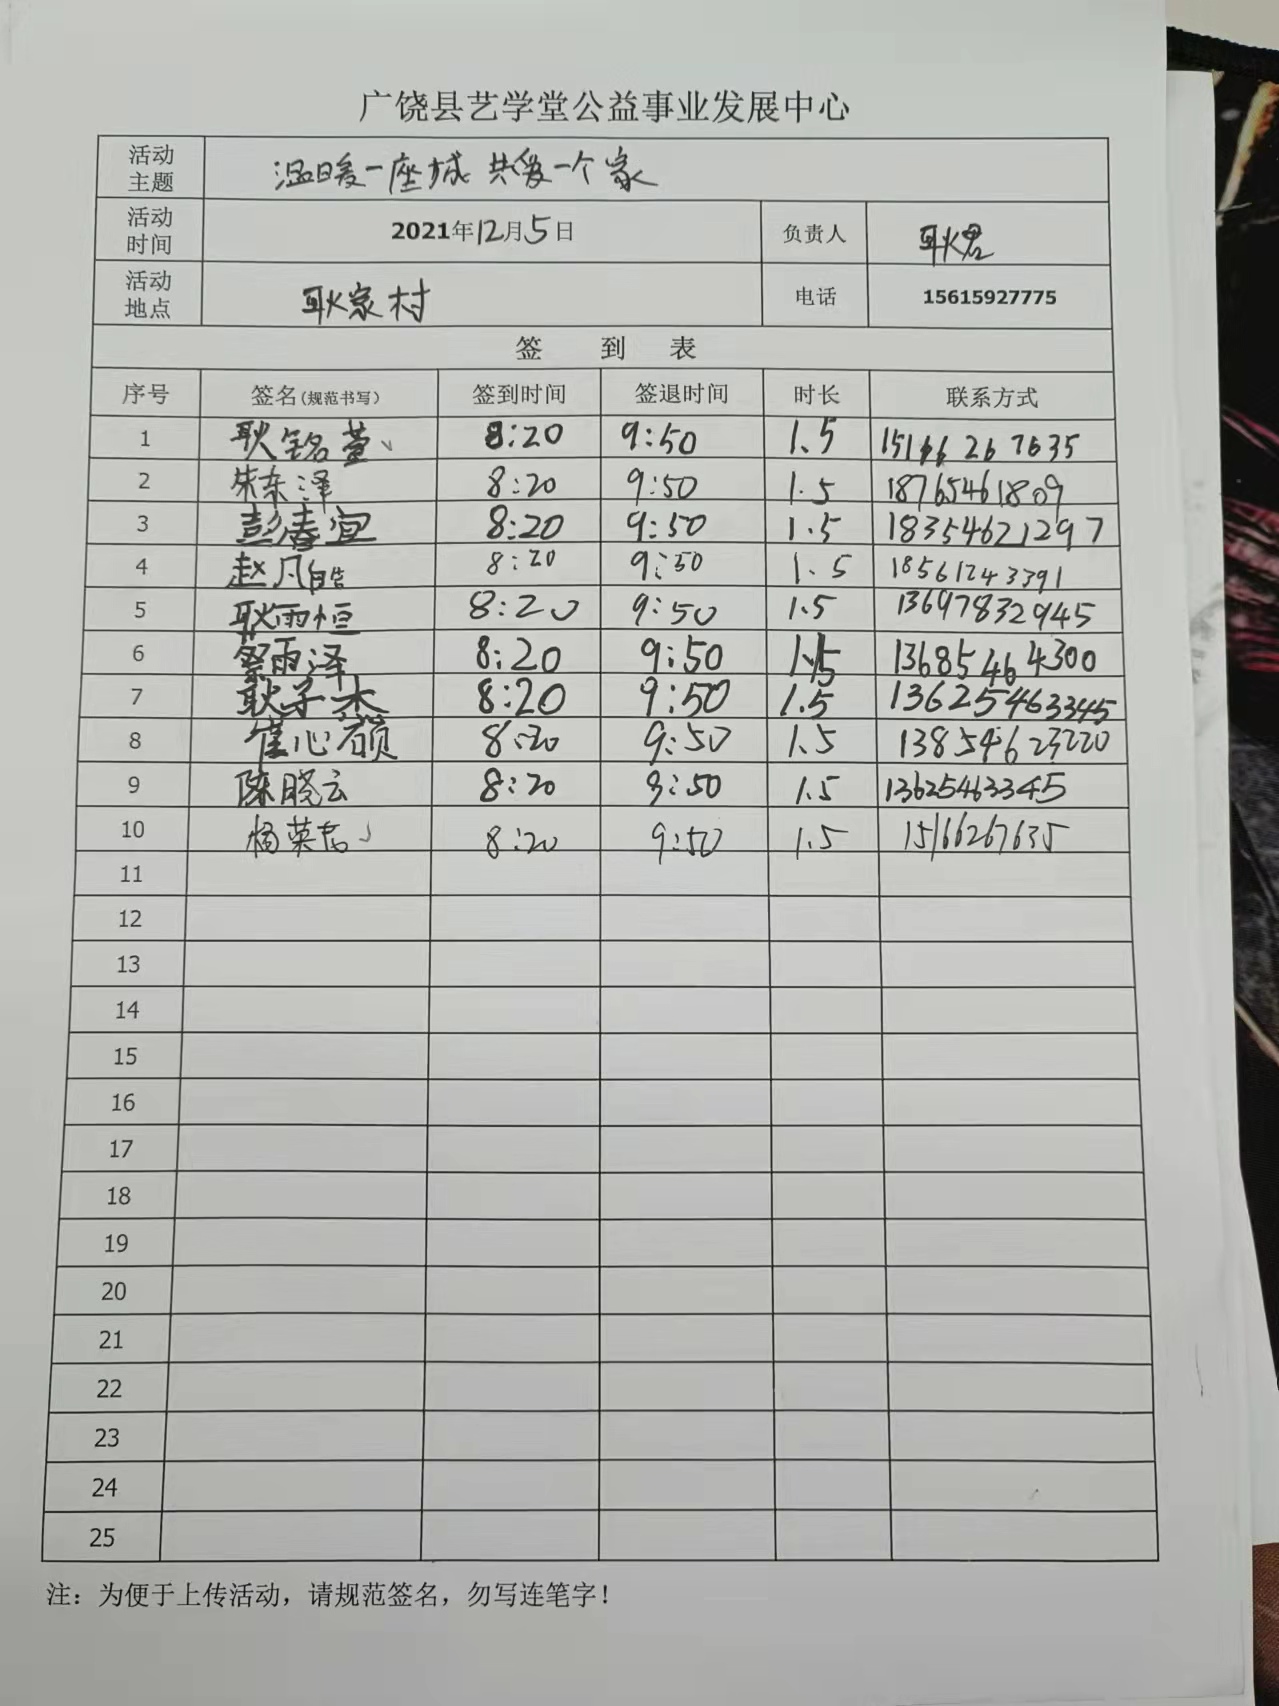 广饶县艺学堂公益事业发展中心
活动主题 温暖一座城 共爱一个家
活动时间 2021年12月5日 负责人 耿君
活动地点 耿家村 电话 15615927775
签 到 表
序号 签名(规范书写) 签到时间 签退时间 时长 联系方式
1 耿铭萱 8:20 9:50 1.5 15166267635
2 朱东泽 8:20 9:50 1.5 18765461809
3 彭春宜 8:20 9:50 1.5 18354621297
4 赵凡皓 8:20 9:50 1.5 18561243391
5 耿雨恒 8:20 9:50 1.5 13697832945
6 雨泽 8:20 9:50 1.5 13685464300
7 耿子木 8:20 9:50 1.5 13625463345
8 崔心颜 8:20 9:50 1.5 13854623220
9 陈晓云 8:20 9:50 1.5 13625463345
10 杨英君 8:20 9:50 1.5 15166267635
11
12
13
14
15
16
17
18
19
20
21
22
23
24
25
注：为便于上传活动，请规范签名，勿写连笔字！